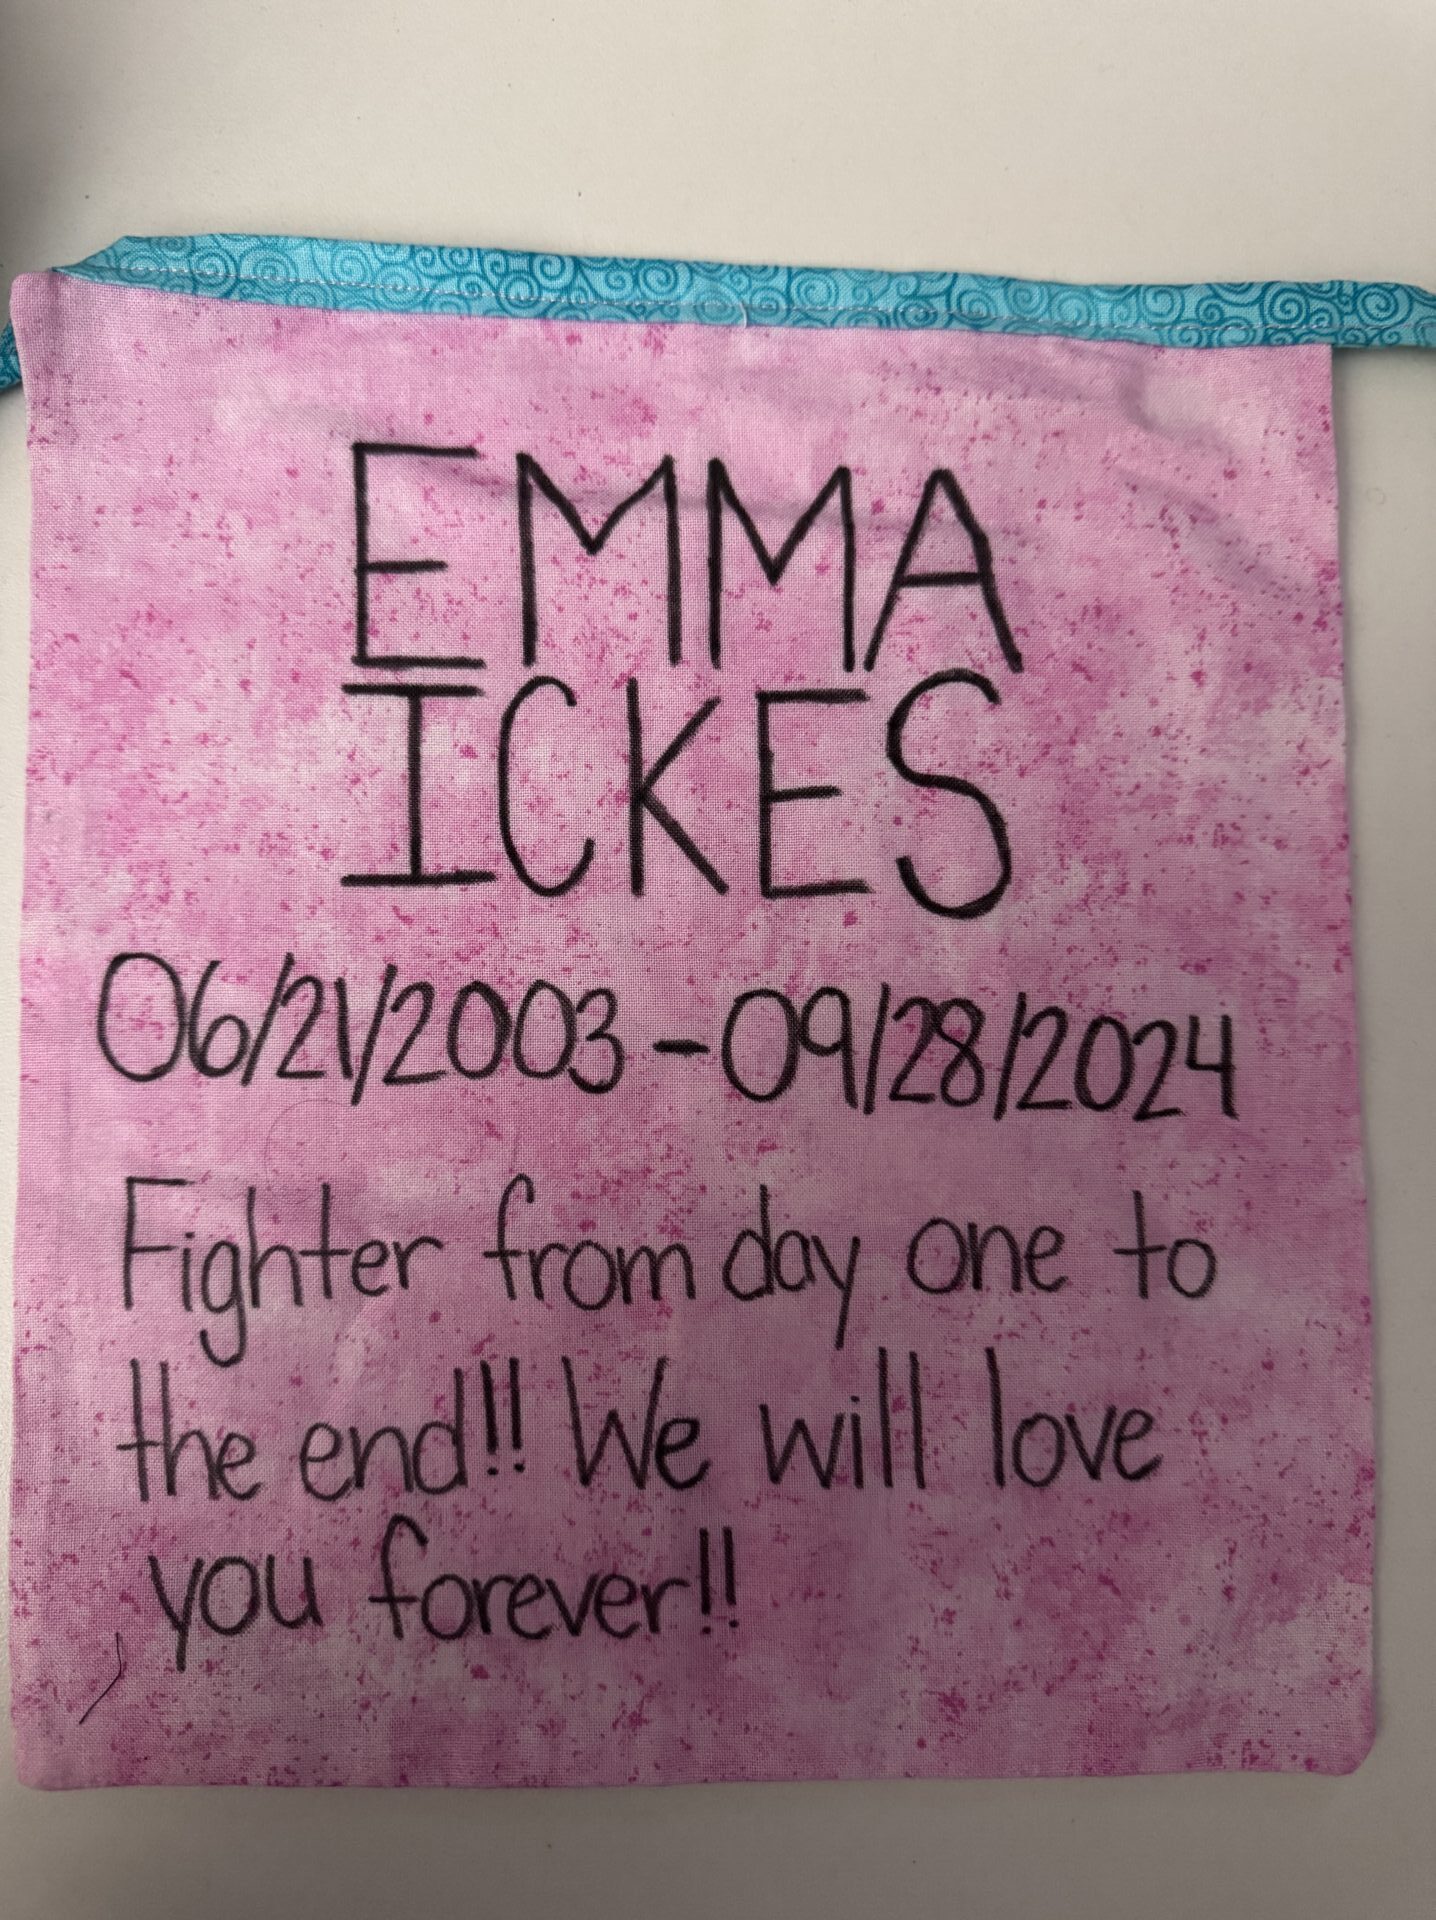 EMMA
ICKES
06/21/2003-09/28/2024
Fighter from day one to
the end!! We will love
you forever!!